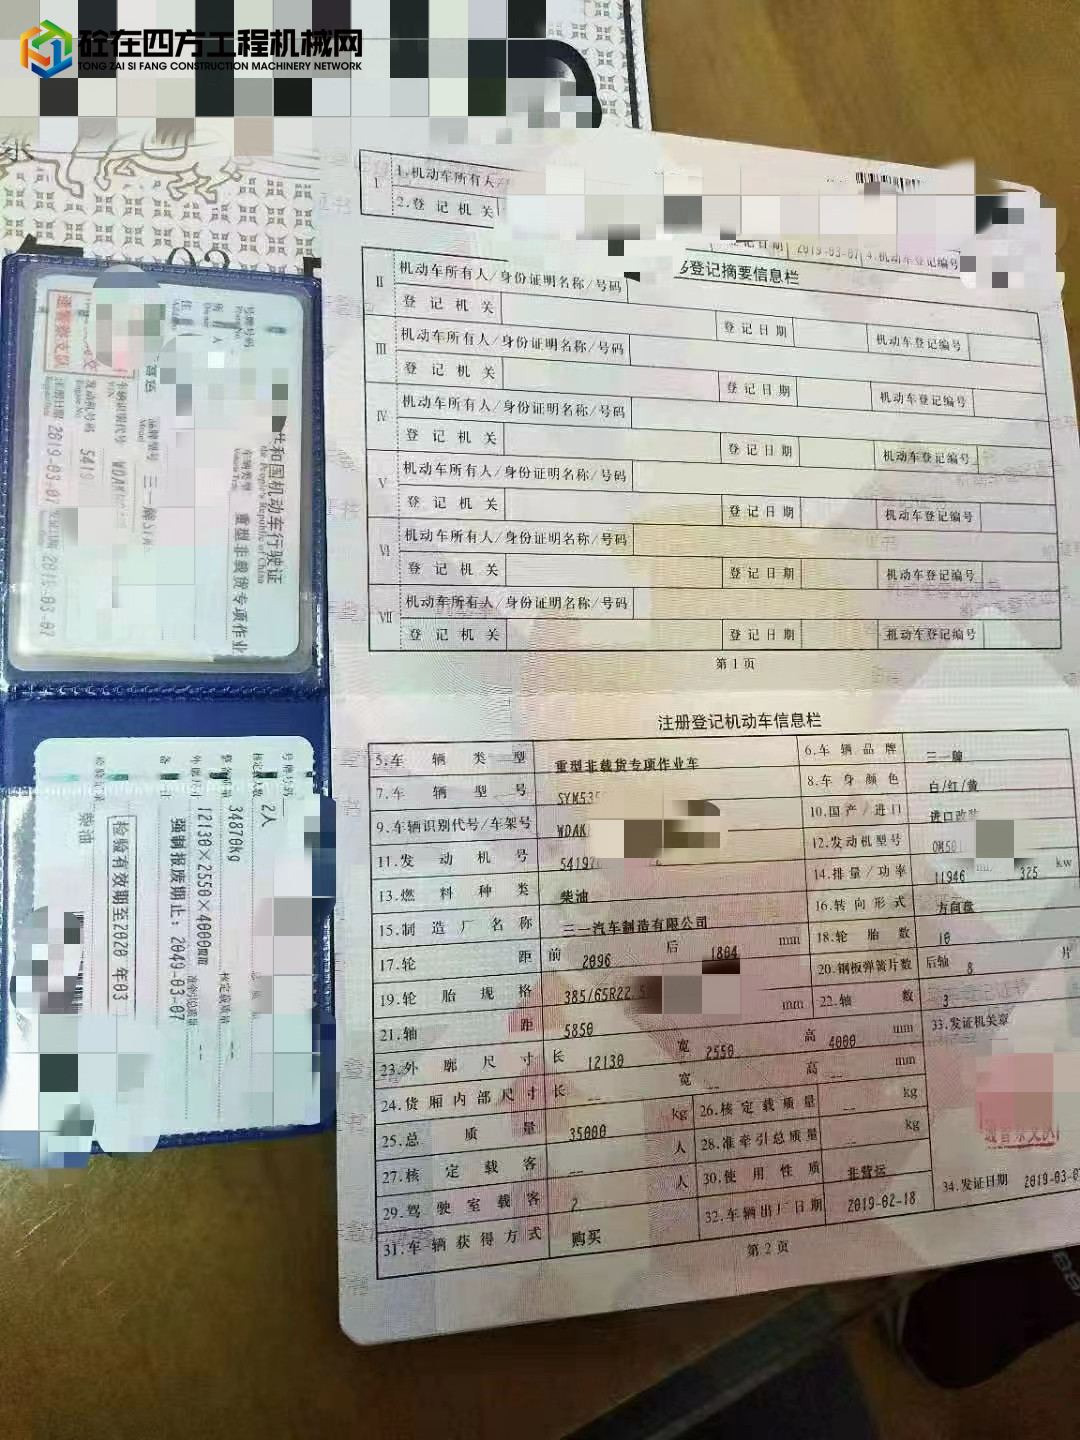 砼在四方工程机械网
TONG ZAI SI FANG CONSTRUCTION MACHINERY NETWORK
I
1.机动车所有人
2.登 记 机 关
登记日期 2019-03-07 4.机动车登记编号
登记摘要信息栏
II 机动车所有人/身份证明名称/号码
登 记 机 关 登记日期 机动车登记编号
III 机动车所有人/身份证明名称/号码
登 记 机 关 登记日期 机动车登记编号
IV 机动车所有人/身份证明名称/号码
登 记 机 关 登记日期 机动车登记编号
V 机动车所有人/身份证明名称/号码
登 记 机 关 登记日期 机动车登记编号
VI 机动车所有人/身份证明名称/号码
登 记 机 关 登记日期 机动车登记编号
VII 机动车所有人/身份证明名称/号码
登 记 机 关 登记日期 机动车登记编号
第 1 页
注册登记机动车信息栏
5.车 辆 类 型 重型非载货专项作业车 6.车 辆 品 牌 三一牌
7.车 辆 型 号 SYM535 8.车 身 颜 色 白/红/黄
9.车辆识别代号/车架号 WDAK 10.国产/进口 进口改装
11.发 动 机 号 54197 12.发动机型号 OM50
13.燃 料 种 类 柴油 14.排量/功率 11946 ml 325 kw
15.制造厂名称 三一汽车制造有限公司 16.转向形式 方向盘
17.轮 距 前 2096 后 1804 mm 18.轮 胎 数 10
19.轮胎规格 385/65R22.5 20.钢板弹簧片数 后轴 8 片
21.轴 距 5850 mm 22.轴 数 3
23.外廓尺寸 长 12130 宽 2550 高 4000 mm 33.发证机关章
24.货厢内部尺寸 长 -- 宽 -- 高 -- mm
25.总 质 量 35000 kg 26.核定载质量 -- kg
27.核 定 载 客 -- 人 28.准牵引总质量 kg
29.驾驶室载客 2 人 30.使 用 性 质 非营运
31.车辆获得方式 购买 32.车辆出厂日期 2019-02-18 34.发证日期 2019-03-0
第 2 页
性和国机动车行驶证
the People's Republic of China
号牌号码
车辆类型 重型非载货专项作业
品牌型号 三一牌
车辆识别代号 WDAK
发动机号码 5419
注册日期 2019-03-07 发证日期 2019-03-07
核定载人数 2人
34870kg 核定载质量 --
12130×2550×4000mm 准牵引总质量 --
强制报废期止：2049-03-07
检验有效期至2020 年03
柴油